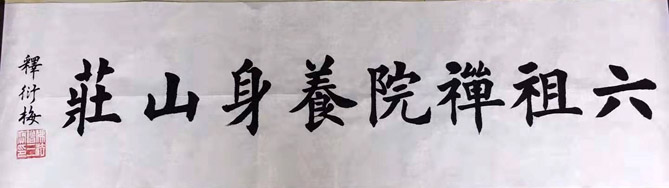 六祖禪院養身山莊
釋衍梅